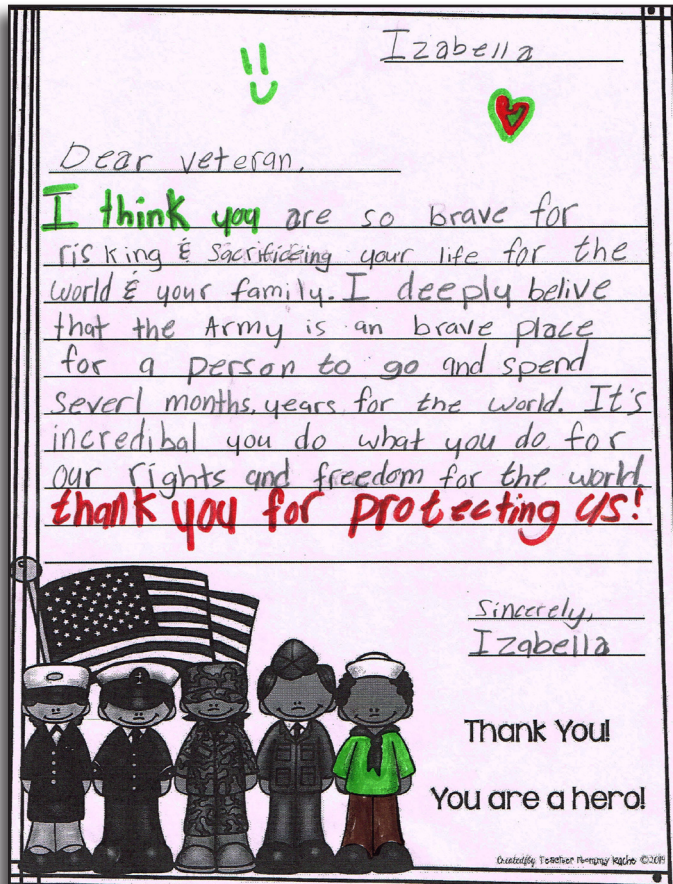 Izabella
Dear veteran,
I think you are so brave for
risking & Sacrificeing your life for the
world & your family. I deeply belive
that the Army is an brave place
for a person to go and spend
severl months, years for the world. It's
incredibal you do what you do for
our rights and freedom for the world
thank you for protecting us!
Sincerely,
Izabella
Thank You!
You are a hero!
Created by Teacher Mommy Teache ©2014